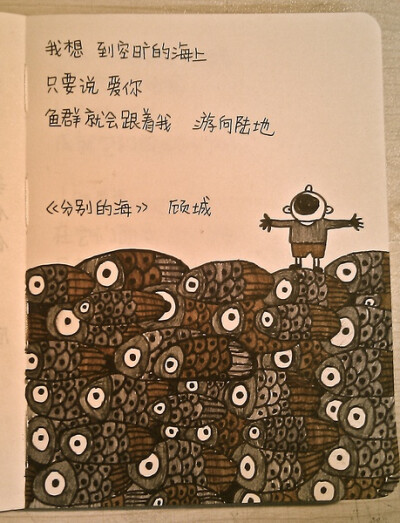 我想 到空旷的海上
只要说 爱你
鱼群就会跟着我 游向陆地
《分别的海》 顾城